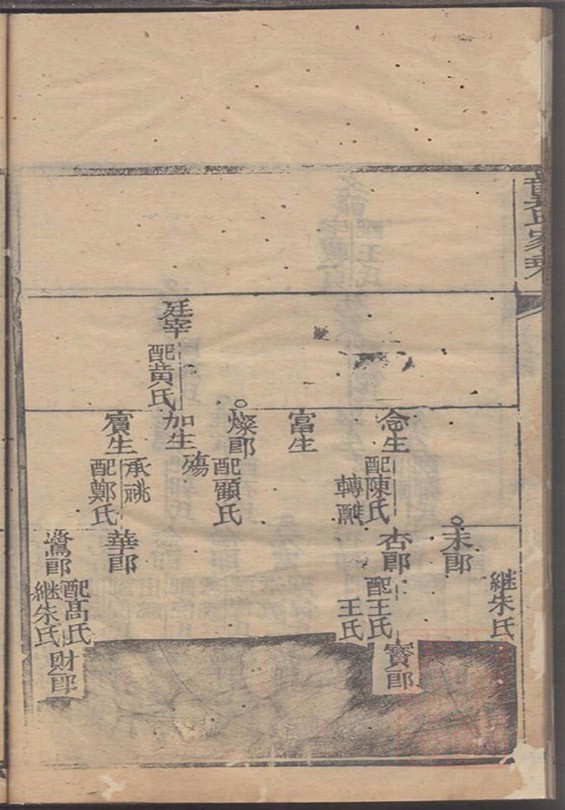 継朱氏
未郎
念生
配陳氏
轉
杏郎
配王氏
王氏
寳郎
富生
燦郎
配顧氏
廷宰
配黄氏
加生
殤
賓生
承祧
配鄭氏
華郎
鷟郎
配高氏
継朱氏
财郎